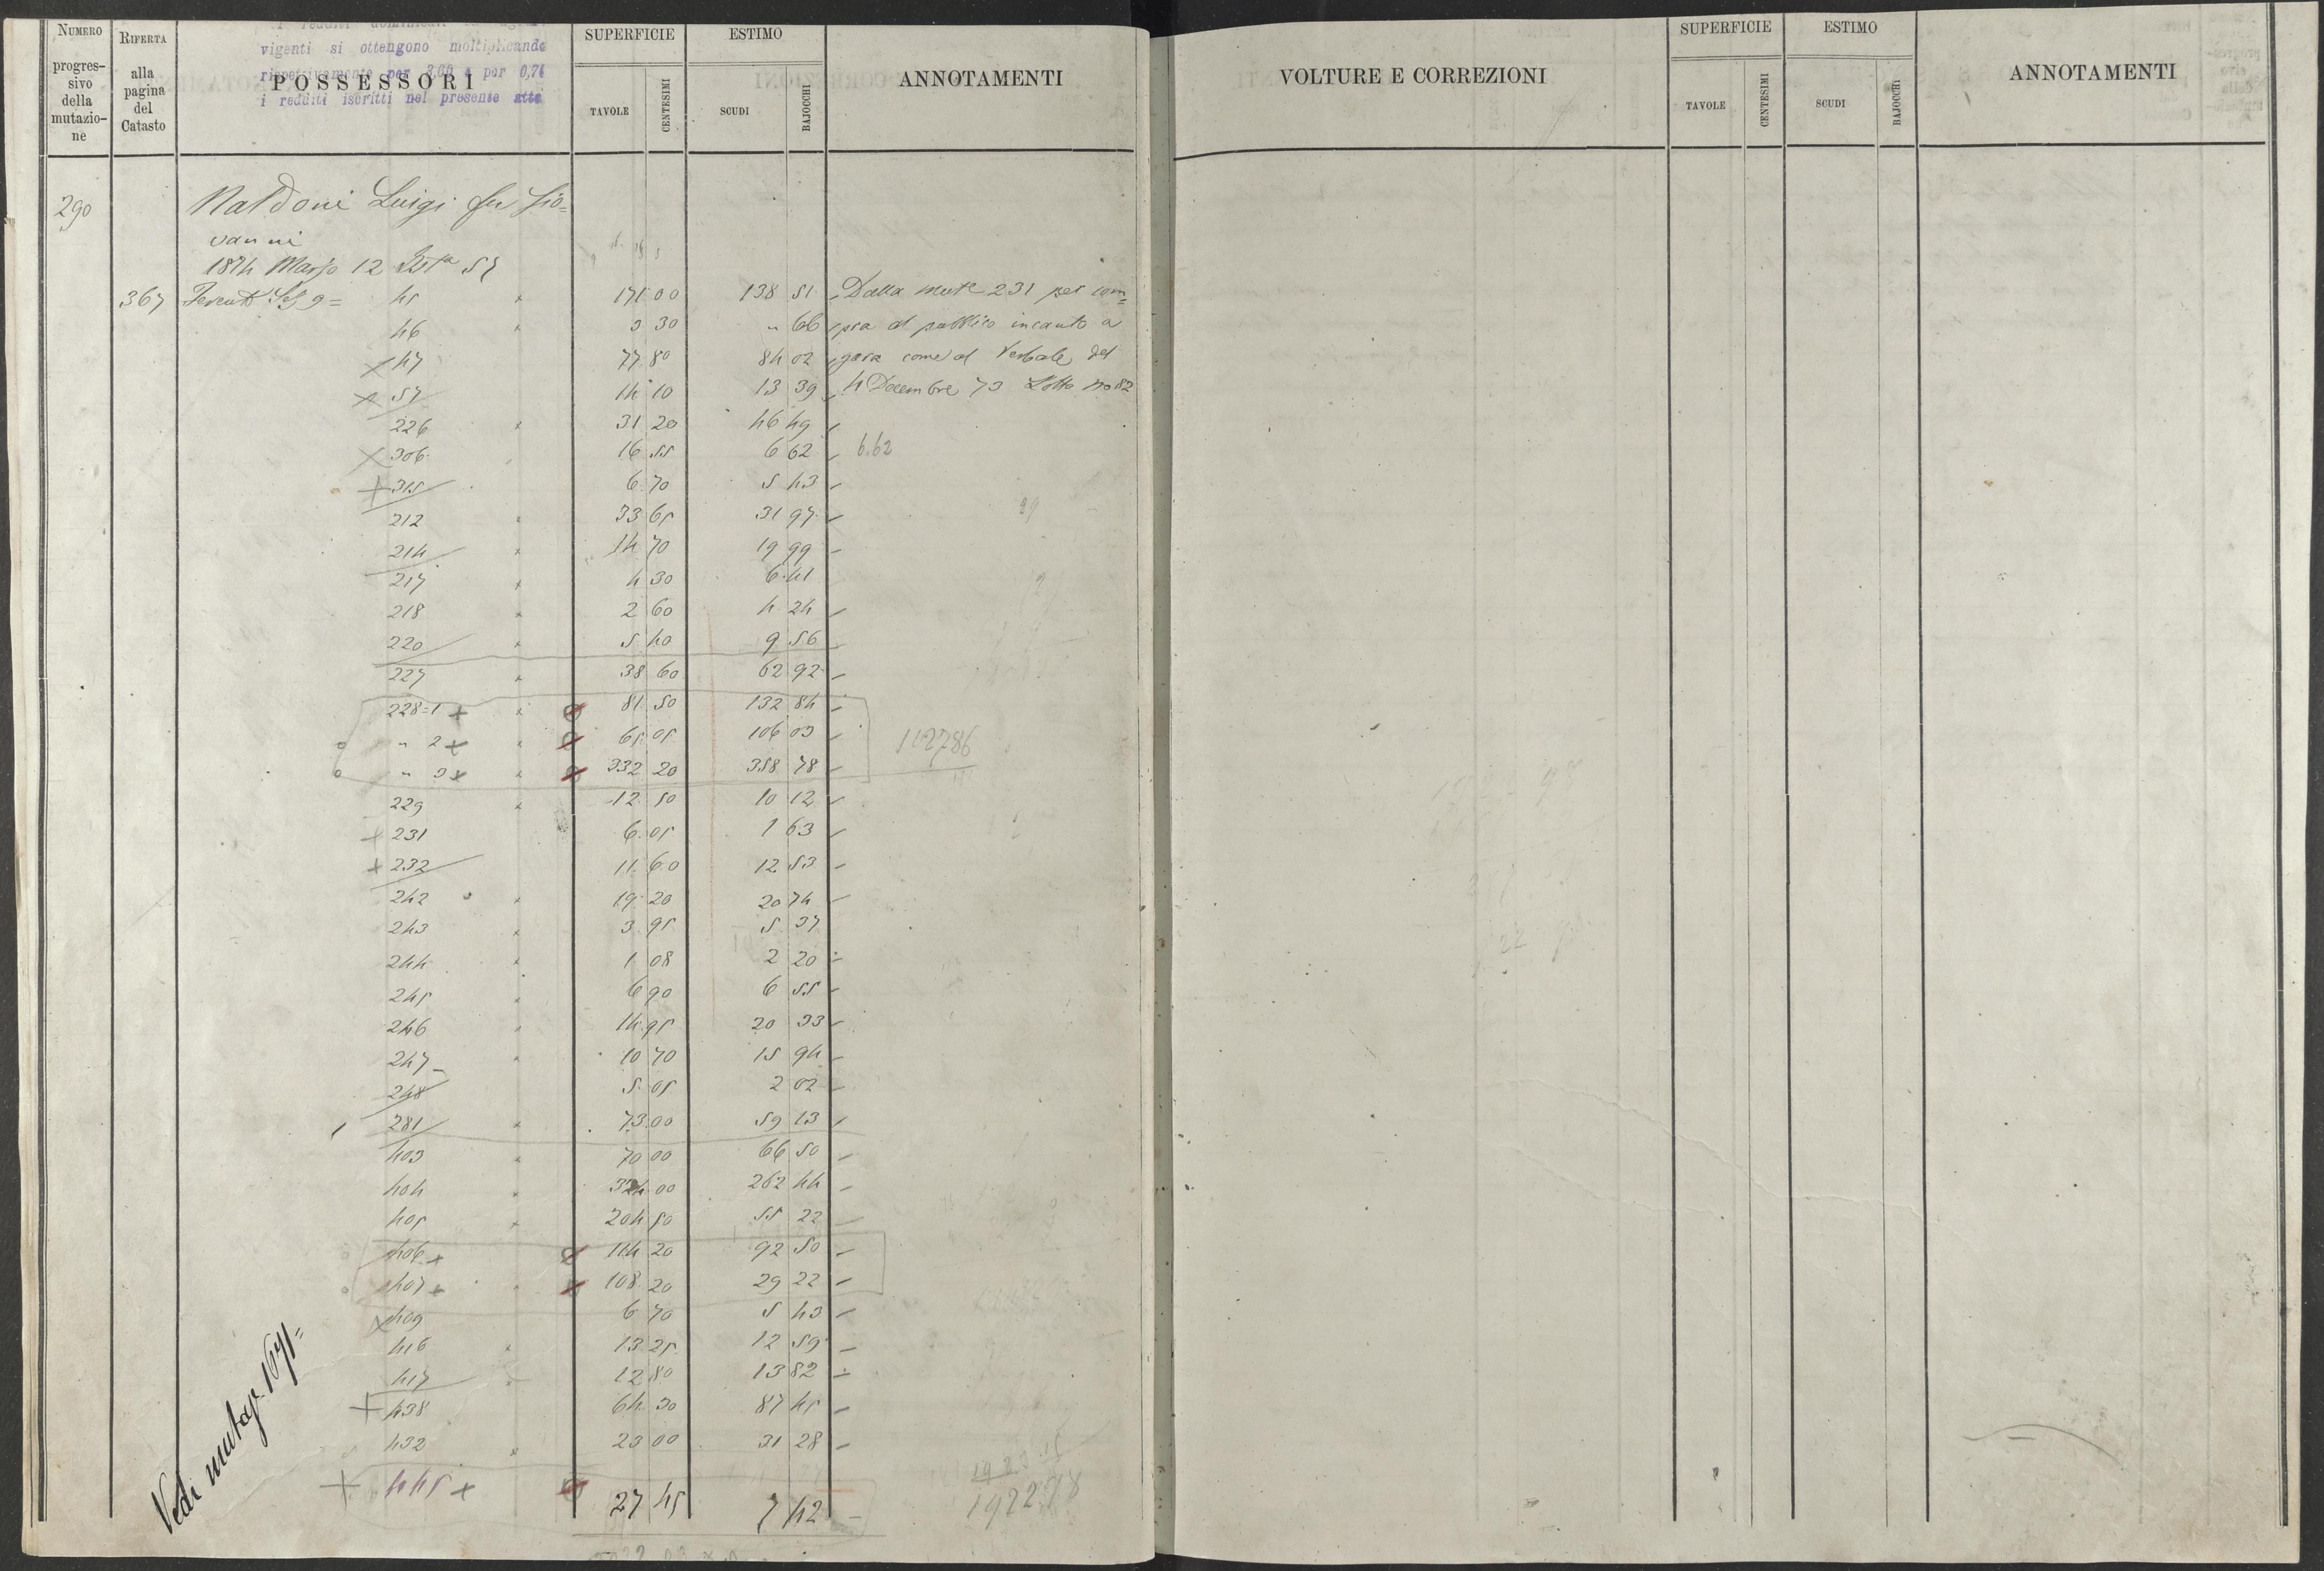 NUMERO progressivo della mutazione
RIFERTA alla pagina del Catasto
vigenti si ottengono moltiplicando
rispettivamente per 3,60 e per 0,74
i redditi iscritti nel presente atto
POSSESSORI
SUPERFICIE TAVOLE CENTESIMI
ESTIMO SCUDI BAJOCCHI
ANNOTAMENTI
290 Naldoni Luigi fu Gio=
vanni
1874 Marzo 12
367 45 171 00 138 51 Dalla mut.e 231 per com=
46 3 30 " 66 pra al pubblico incanto a
47 77 80 84 02 gara come al Verbale del
57 14 10 13 39 4 Dicembre 73 Lotto no 82
226 31 20 46 49
306 16 55 6 62 6.62
315 6 70 5 43
212 33 65 31 97
214 14 70 19 99
217 4 30 6 41
218 2 60 4 24
220 5 40 9 56
227 38 60 62 92
228=1 81 50 132 84
" 2 65 05 106 03
" 3 332 20 358 78
229 12 50 10 12
231 6 05 1 63
232 11 60 12 53
242 19 20 20 74
243 3 95 5 37
244 1 08 2 20
245 6 90 6 55
246 14 95 20 33
247 10 70 15 94
248 5 05 2 02
281 73 00 59 13
403 70 00 66 50
404 324 00 262 44
405 204 50 55 22
406 114 20 92 50
407 108 20 29 22
409 6 70 5 43
416 13 25 12 59
417 12 80 13 82
438 64 30 87 45
432 23 00 31 28
445 27 45 7 42
1922.78
Vedi mutaz. 1671=
VOLTURE E CORREZIONI
SUPERFICIE TAVOLE CENTESIMI
ESTIMO SCUDI BAJOCCHI
ANNOTAMENTI